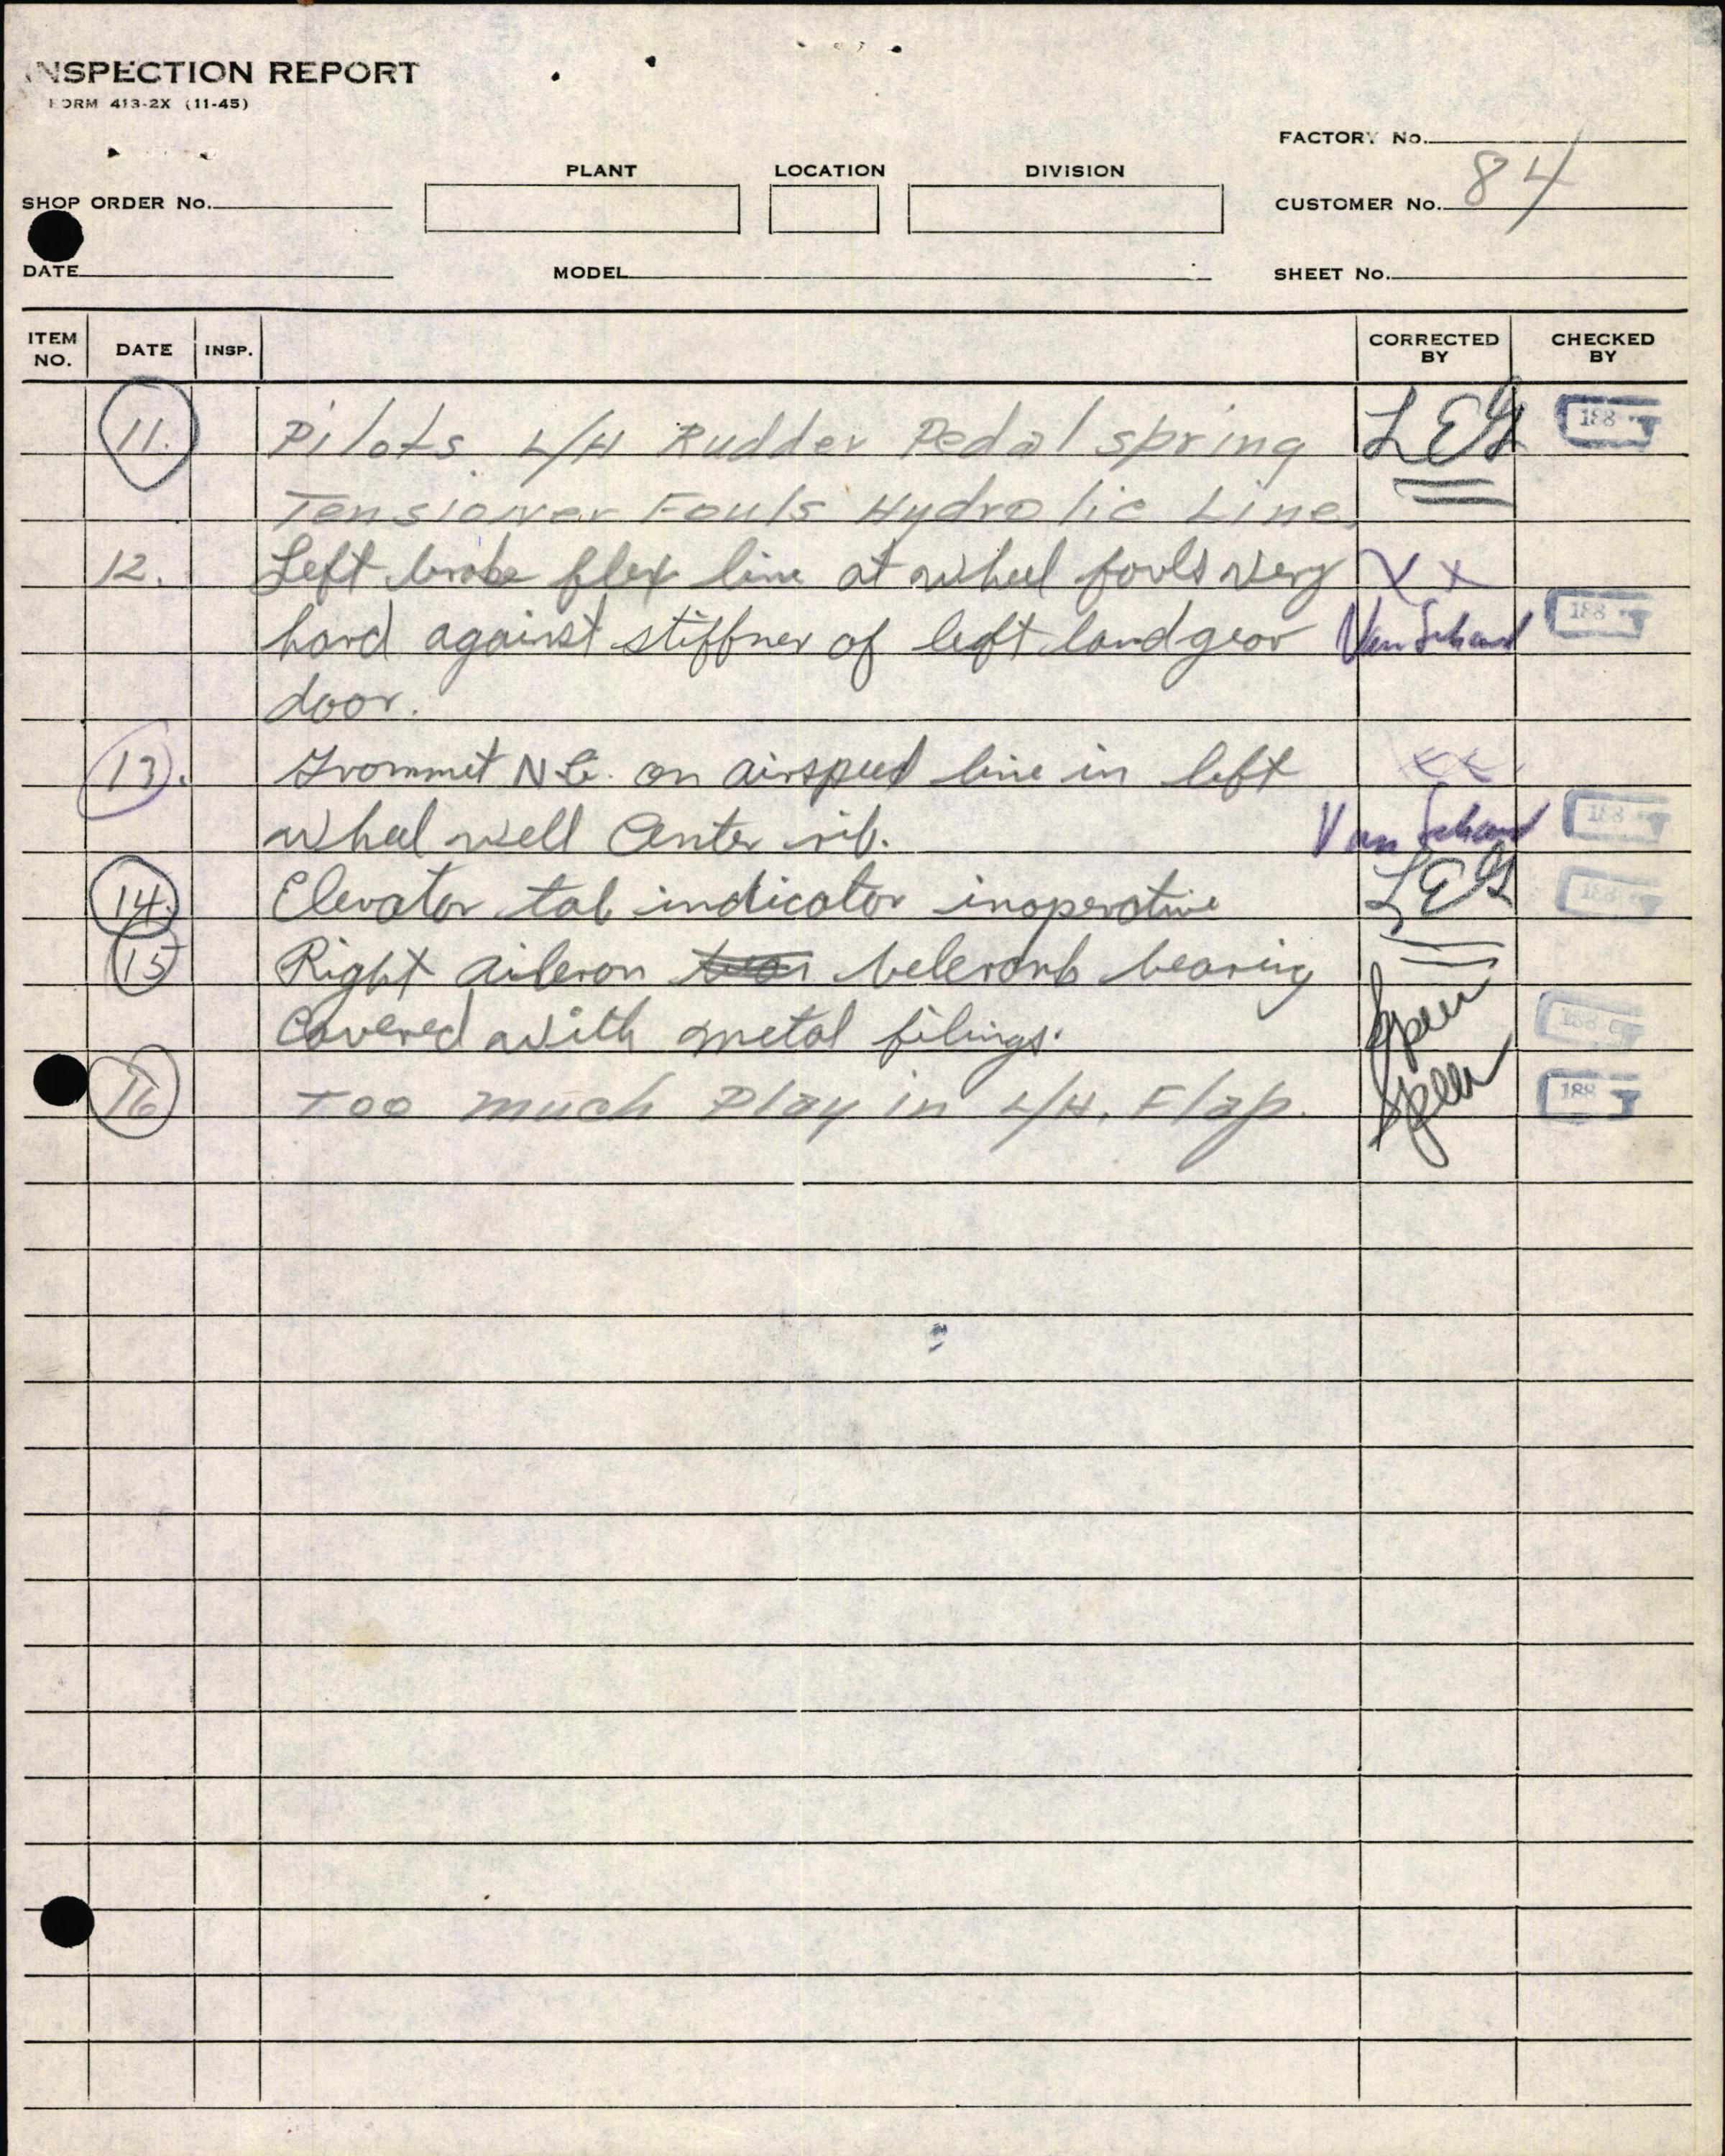 INSPECTION REPORT
FORM 413-2X (11-45)
FACTORY No.
PLANT LOCATION DIVISION
SHOP ORDER No. CUSTOMER No. 84
DATE MODEL SHEET No.
ITEM NO. DATE INSP. CORRECTED BY CHECKED BY
11. Pilots L/H Rudder Pedal spring LEG 188
Tensioner Fouls Hydrolic Line.
12. Left brake flex line at wheel fouls very XX
hard against stiffner of left land gear Van Schand 188
door.
13. Grommet N.G. on airspeed line in left XX
wheel well Center rib. Van Schand 188
14. Elevator tab indicator inoperative LEG 188
15 Right aileron belcrank bearing
Covered with metal filings. Speer 188
16 Too much Play in L/H. Flap. Speer 188